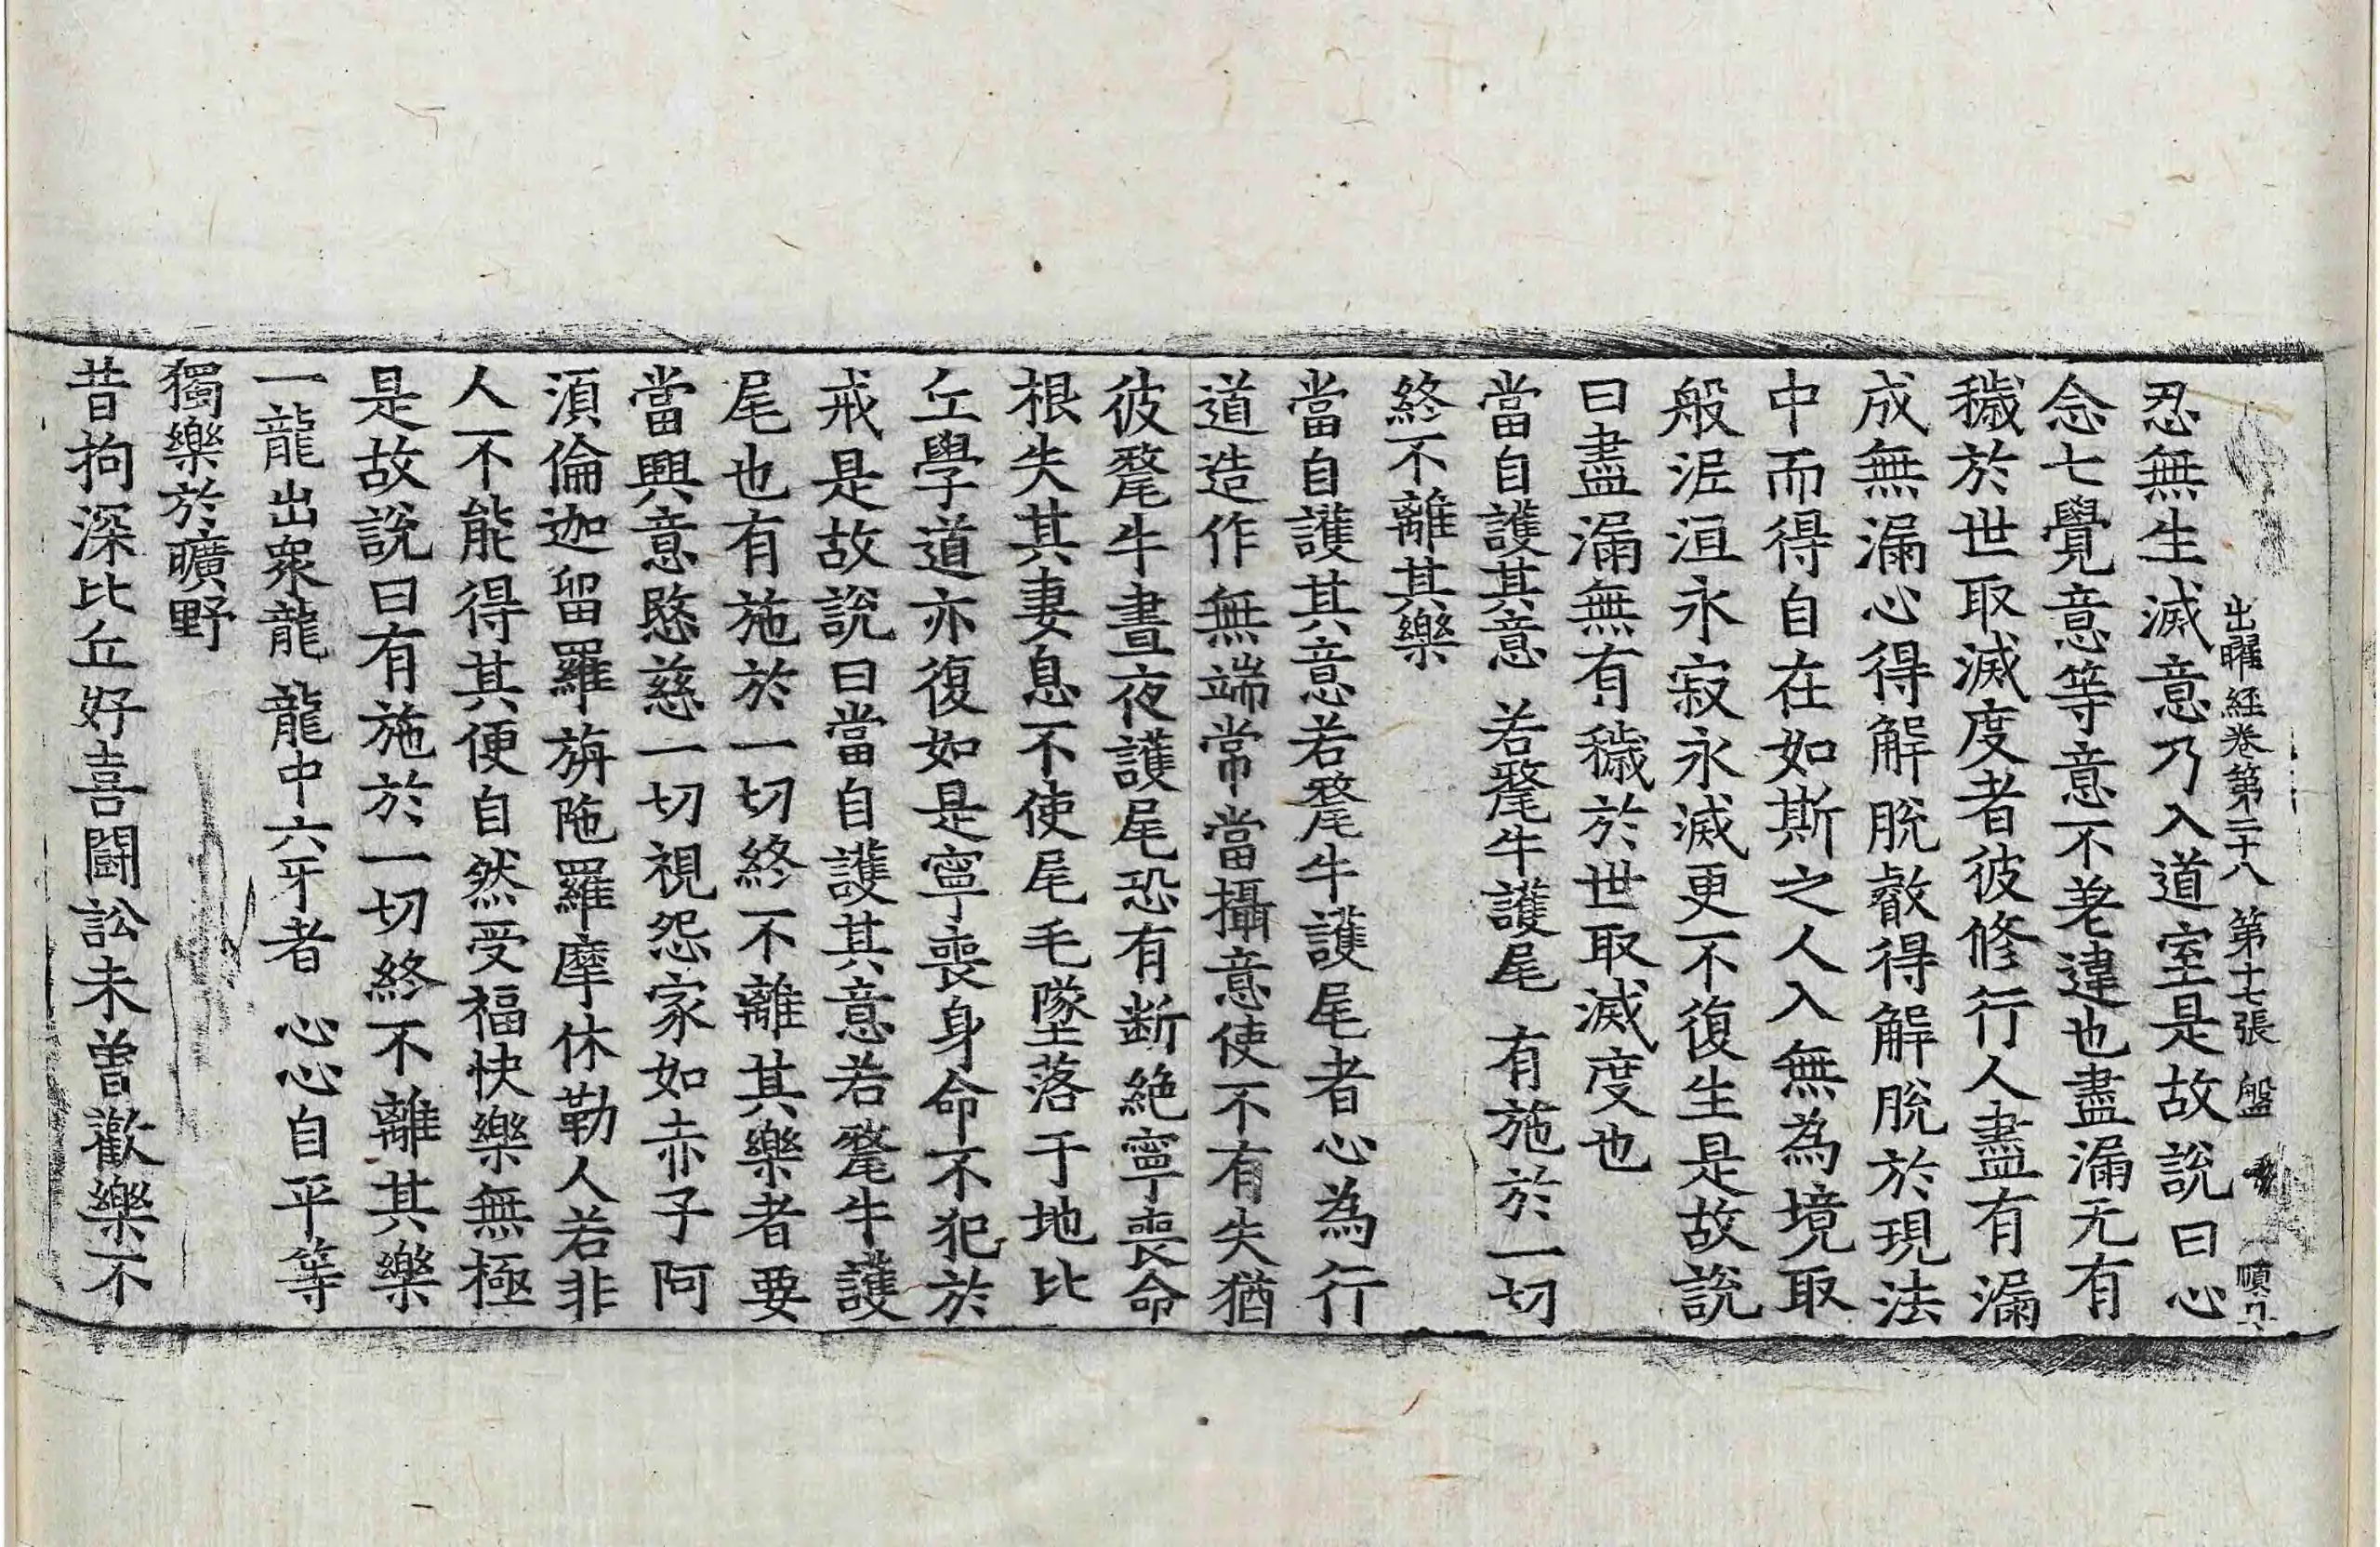 出曜經卷第二十八 第十七張 盤
忍無生滅意乃入道室是故說曰心
念七覺意等意不差違也盡漏无有
穢於世取滅度者彼修行人盡有漏
成無漏心得解脫㪫得解脫於現法
中而得自在如斯之人入無為境取
般泥洹永寂永滅更不復生是故說
曰盡漏無有穢於世取滅度也
當自護其意 若犛牛護尾 有施於一切
終不離其樂
當自護其意若犛牛護尾者心為行
道造作無端常當攝意使不有失猶
彼犛牛晝夜護尾恐有断絶寧喪命
根失其妻息不使尾毛墜落于地比
丘學道亦復如是寧喪身命不犯於
戒是故說曰當自護其意若犛牛護
尾也有施於一切終不離其樂者要
當興意愍慈一切視怨家如赤子阿
湏倫迦留羅旃陁羅摩休勒人若非
人不能得其便自然受福快樂無極
是故說曰有施於一切終不離其樂
一龍出衆龍 龍中六牙者 心心自平等
獨樂於曠野
昔拘深比丘好喜鬪訟未曾歡樂不